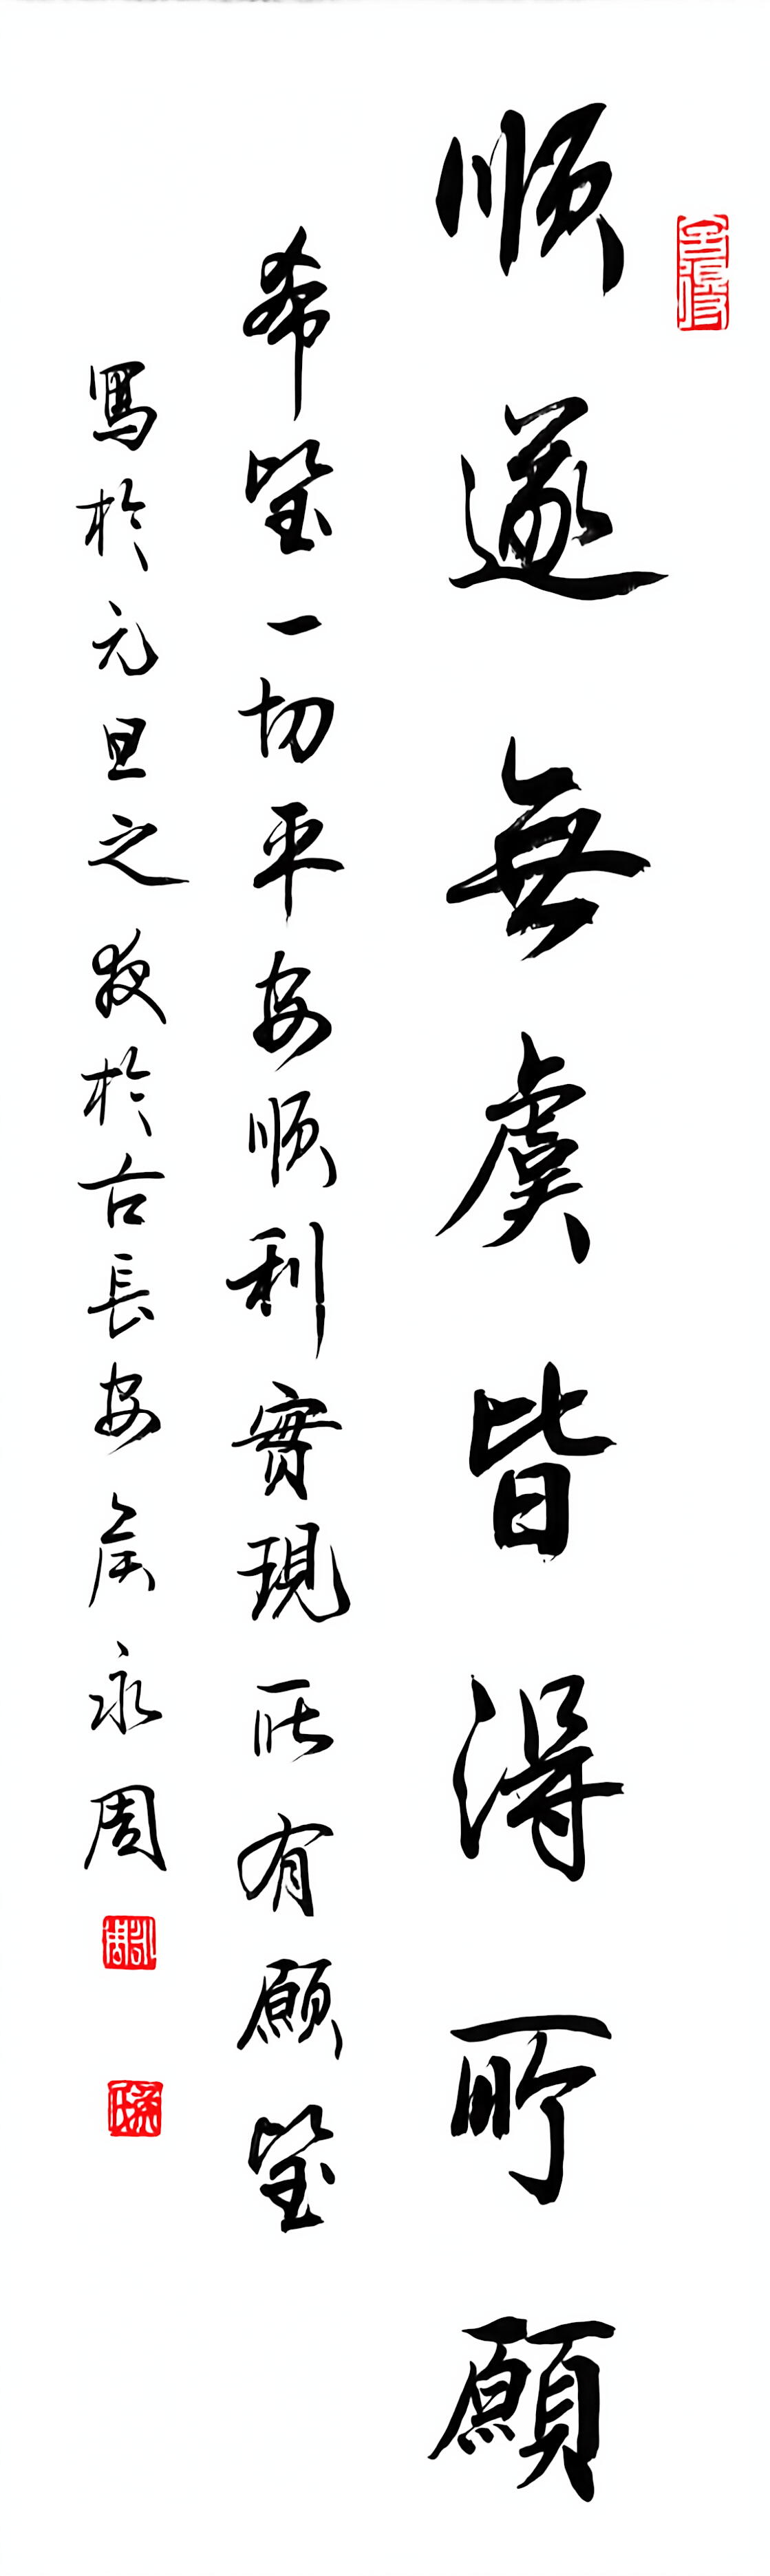 順遂無虞皆得所願
希望一切平安順利實現所有願望
寫於元旦之夜於古長安侯永周